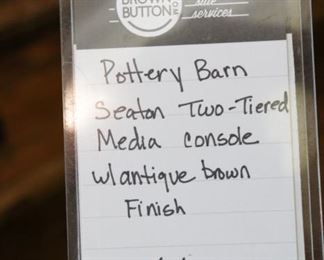 BROWN
BUTTON
services
Pottery Barn
Seaton Two-Tiered
Media console
w/antique brown
Finish